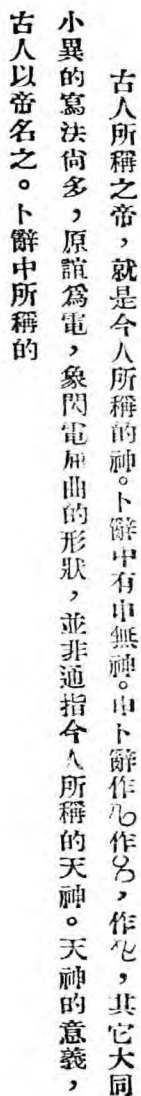 古人所稱之帝，就是今人所稱的神。卜辭中有申無神。申卜辭作作，作，其它大同
小異的寫法尙多，原誼爲電，象閃電屈曲的形狀，並非通指今人所稱的天神。天神的意義，
古人以帝名之。卜辭中所稱的